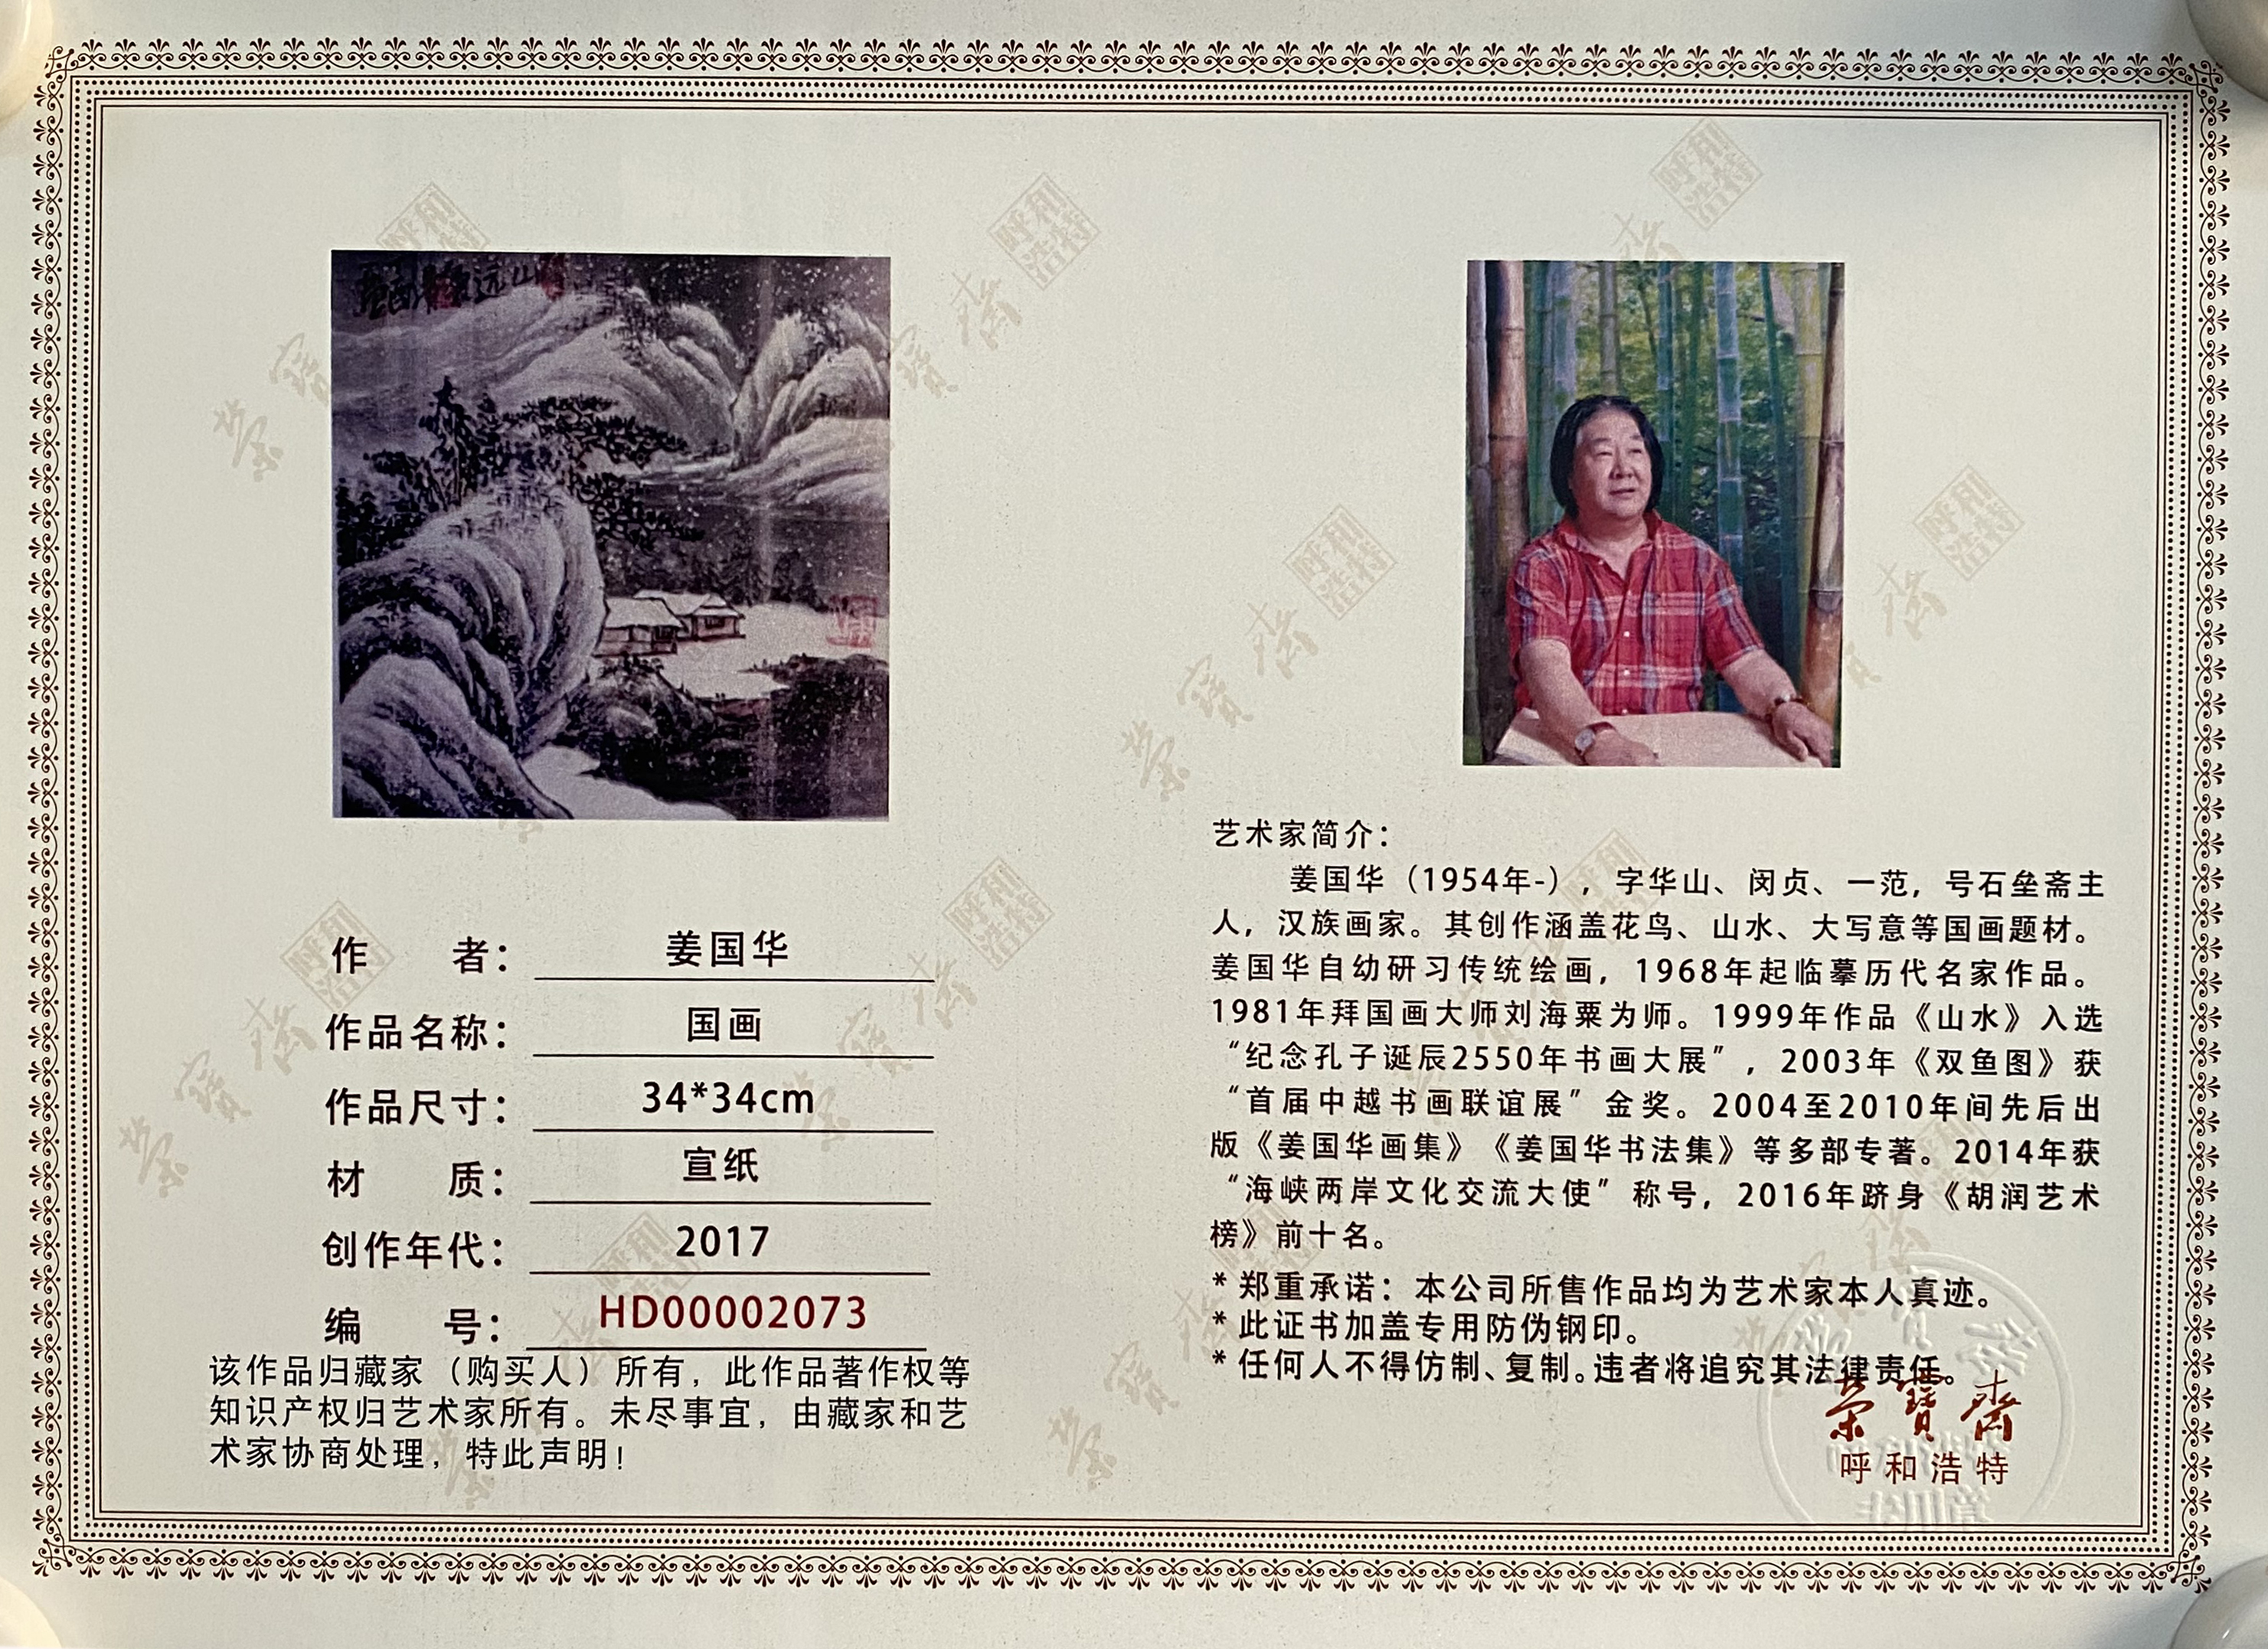 作 者： 姜国华
作品名称： 国画
作品尺寸： 34*34cm
材 质： 宣纸
创作年代： 2017
编 号： HD00002073
该作品归藏家（购买人）所有，此作品著作权等
知识产权归艺术家所有。未尽事宜，由藏家和艺
术家协商处理，特此声明！
艺术家简介：
姜国华（1954年-），字华山、闵贞、一范，号石垒斋主
人，汉族画家。其创作涵盖花鸟、山水、大写意等国画题材。
姜国华自幼研习传统绘画，1968年起临摹历代名家作品。
1981年拜国画大师刘海粟为师。1999年作品《山水》入选
“纪念孔子诞辰2550年书画大展”，2003年《双鱼图》获
“首届中越书画联谊展”金奖。2004至2010年间先后出
版《姜国华画集》《姜国华书法集》等多部专著。2014年获
“海峡两岸文化交流大使”称号，2016年跻身《胡润艺术
榜》前十名。
* 郑重承诺：本公司所售作品均为艺术家本人真迹。
* 此证书加盖专用防伪钢印。
* 任何人不得仿制、复制。违者将追究其法律责任。
荣寶齋
呼和浩特